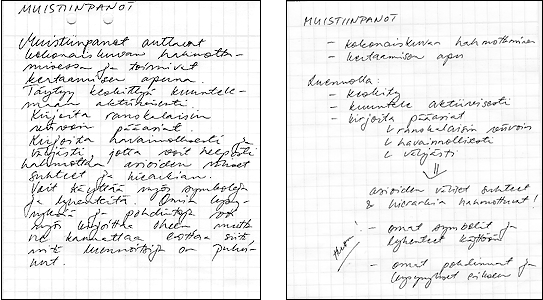 MUISTIINPANOT
Muistiinpanot auttavat
kokonaiskuvan hahmotta-
misessa ja toimivat
kertaamisen apuna.
Täytyy keskittyä kuuntele-
maan aktiivisesti.
Kirjoita ranskalaisin
viivoin pääasiat.
Kirjoita havainnollisesti ja
väljästi, jotta voit helposti
hahmottaa asioiden väliset
suhteet ja hierarkian.
Voit käyttää myös symboleja
ja lyhenteitä. Omia kysy-
myksiä ja pohdintoja voi
myös kirjoittaa oheen, mutta
ne kannattaa erottaa siitä
mitä luennoitsija on puhu-
nut.
MUISTIINPANOT
- kokonaiskuvan hahmottaminen
- kertaamisen apu
Luennolla:
- keskity
- kuuntele aktiivisesti
- kirjoita pääasiat
↳ ranskalaisin viivoin
↳ havainnollisesti
↳ väljästi
⇓
asioiden väliset suhteet
& hierarkia hahmottuvat!
! - omat symbolit ja
lyhenteet käyttöön
- omat pohdinnat ja
kysymykset erikseen